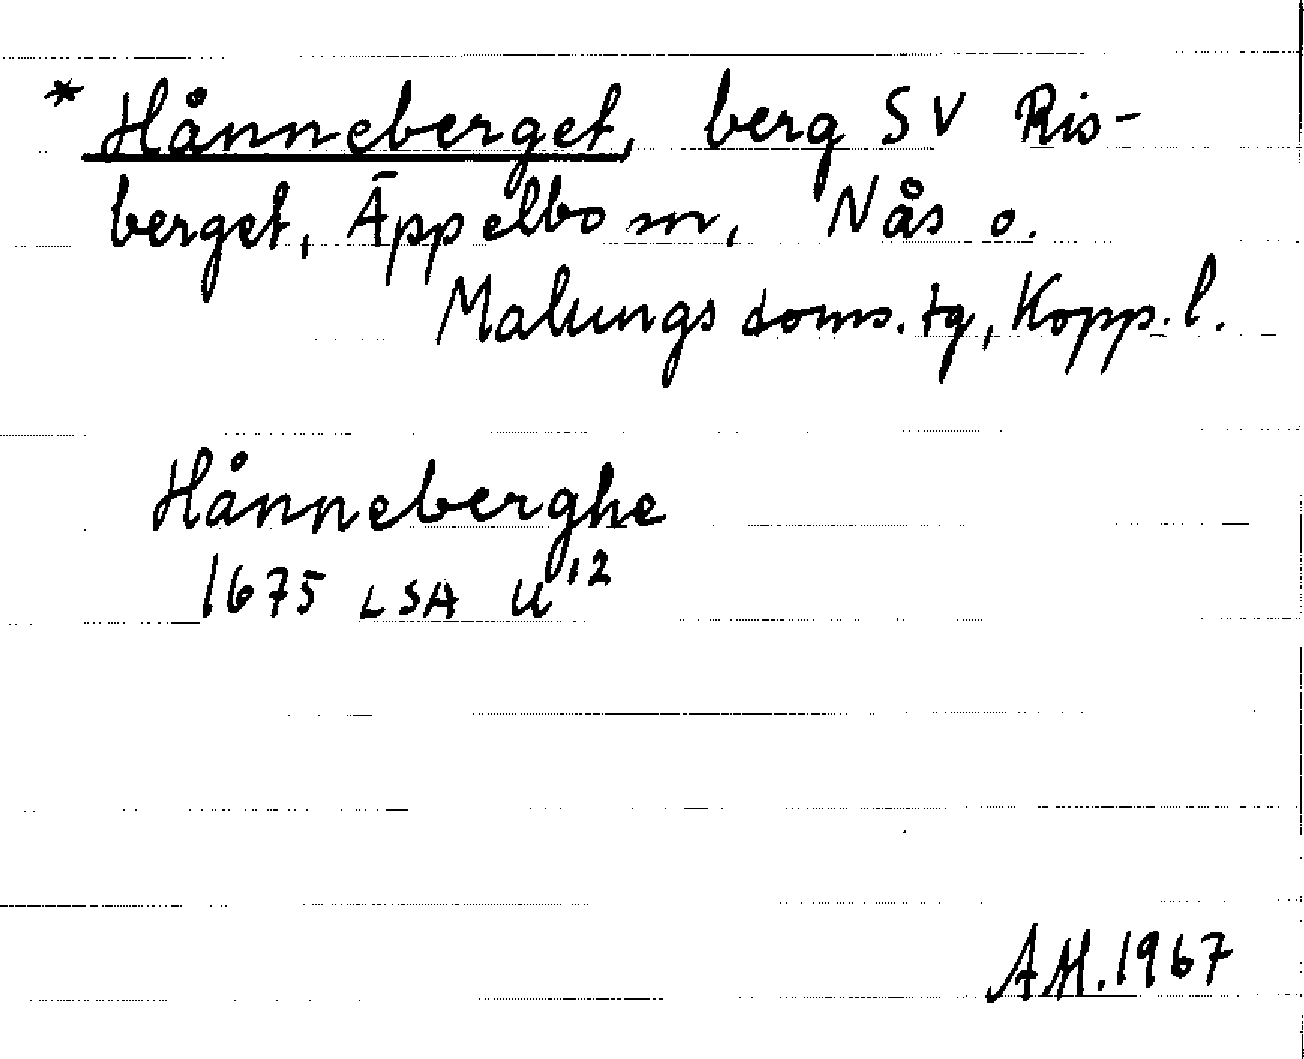 * Hånneberget, berg SV Ris-
berget, Äppelbo sn, Nås o.
Malungs doms. tg, Kopp. l.
Hånneberghe
1675 LSA U 12
AH. 1967